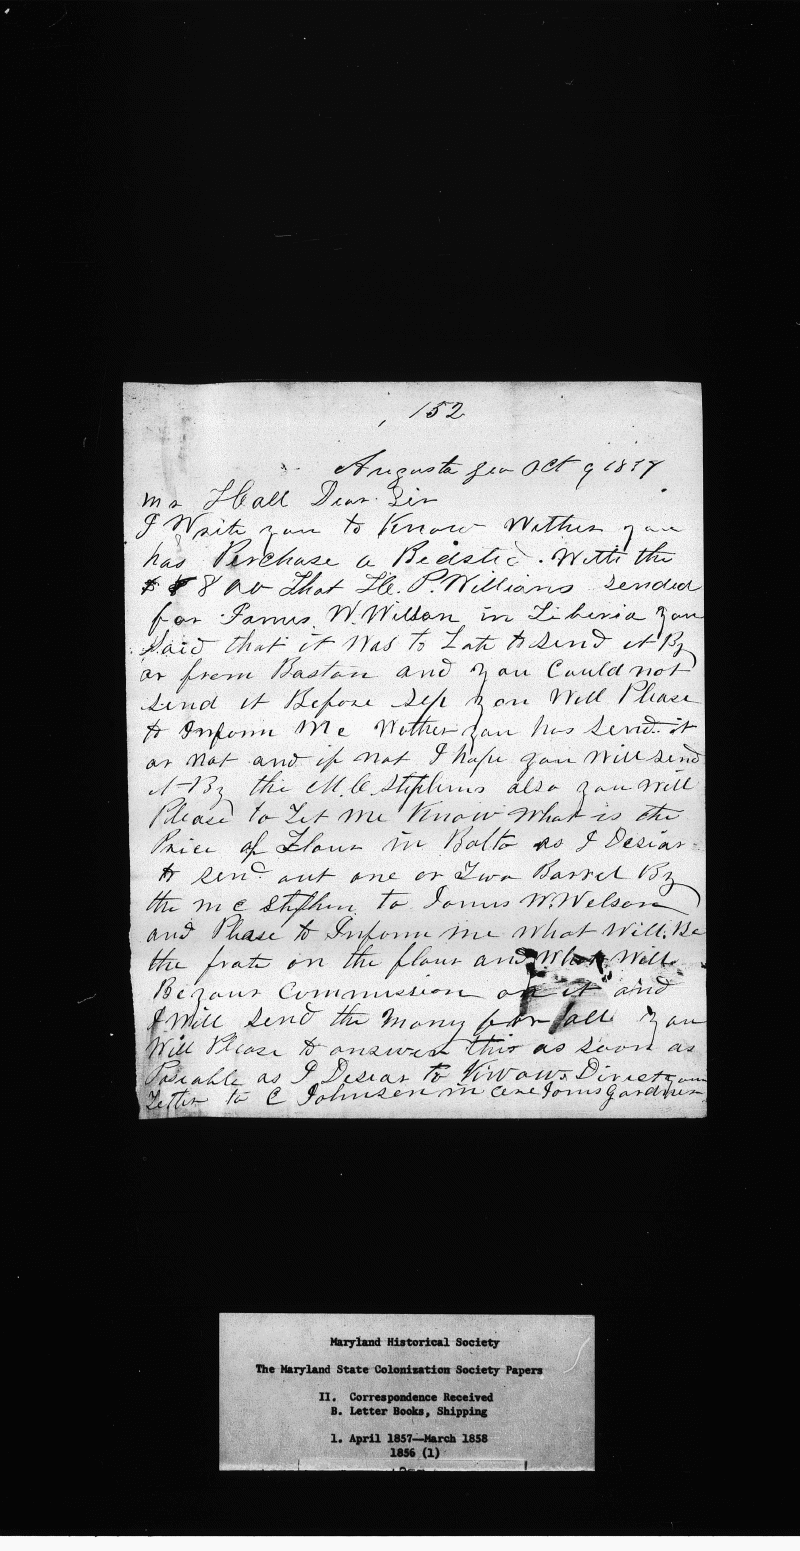 152
Augusta Geo Oct 9 1857
Mr Hall Dear Sir
I Write you to Know Wether you
has Perchase a Bedsted. With the
$ 8 00 That H. P. Williams sended
for James W. Wilson in Liberia you
Said that it Was to Late to send it By
or from Boston and you Could not
send it Before Sep you Will Please
to Inform Me Wether you has send it
or not and if not I hope you Will send
it By the M. C. Stephens also you will
Please to Let Me Know What is the
Price of Flour in Balto as I Desiar
to send out one or Two Barrel By
the M C Stephen to James W. Welson
and Please to Inform me What Will. Be
the frate on the flour and What Will
Be your Commission on it and
I Will Send the Mony for all you
Will Please to answer this as soon as
Posiable as I Desiar to Know. Direct your
Letter to C Johnsen in Care James Gardner
Maryland Historical Society
The Maryland State Colonization Society Papers
II. Correspondence Received
B. Letter Books, Shipping
1. April 1857—March 1858
1856 (1)